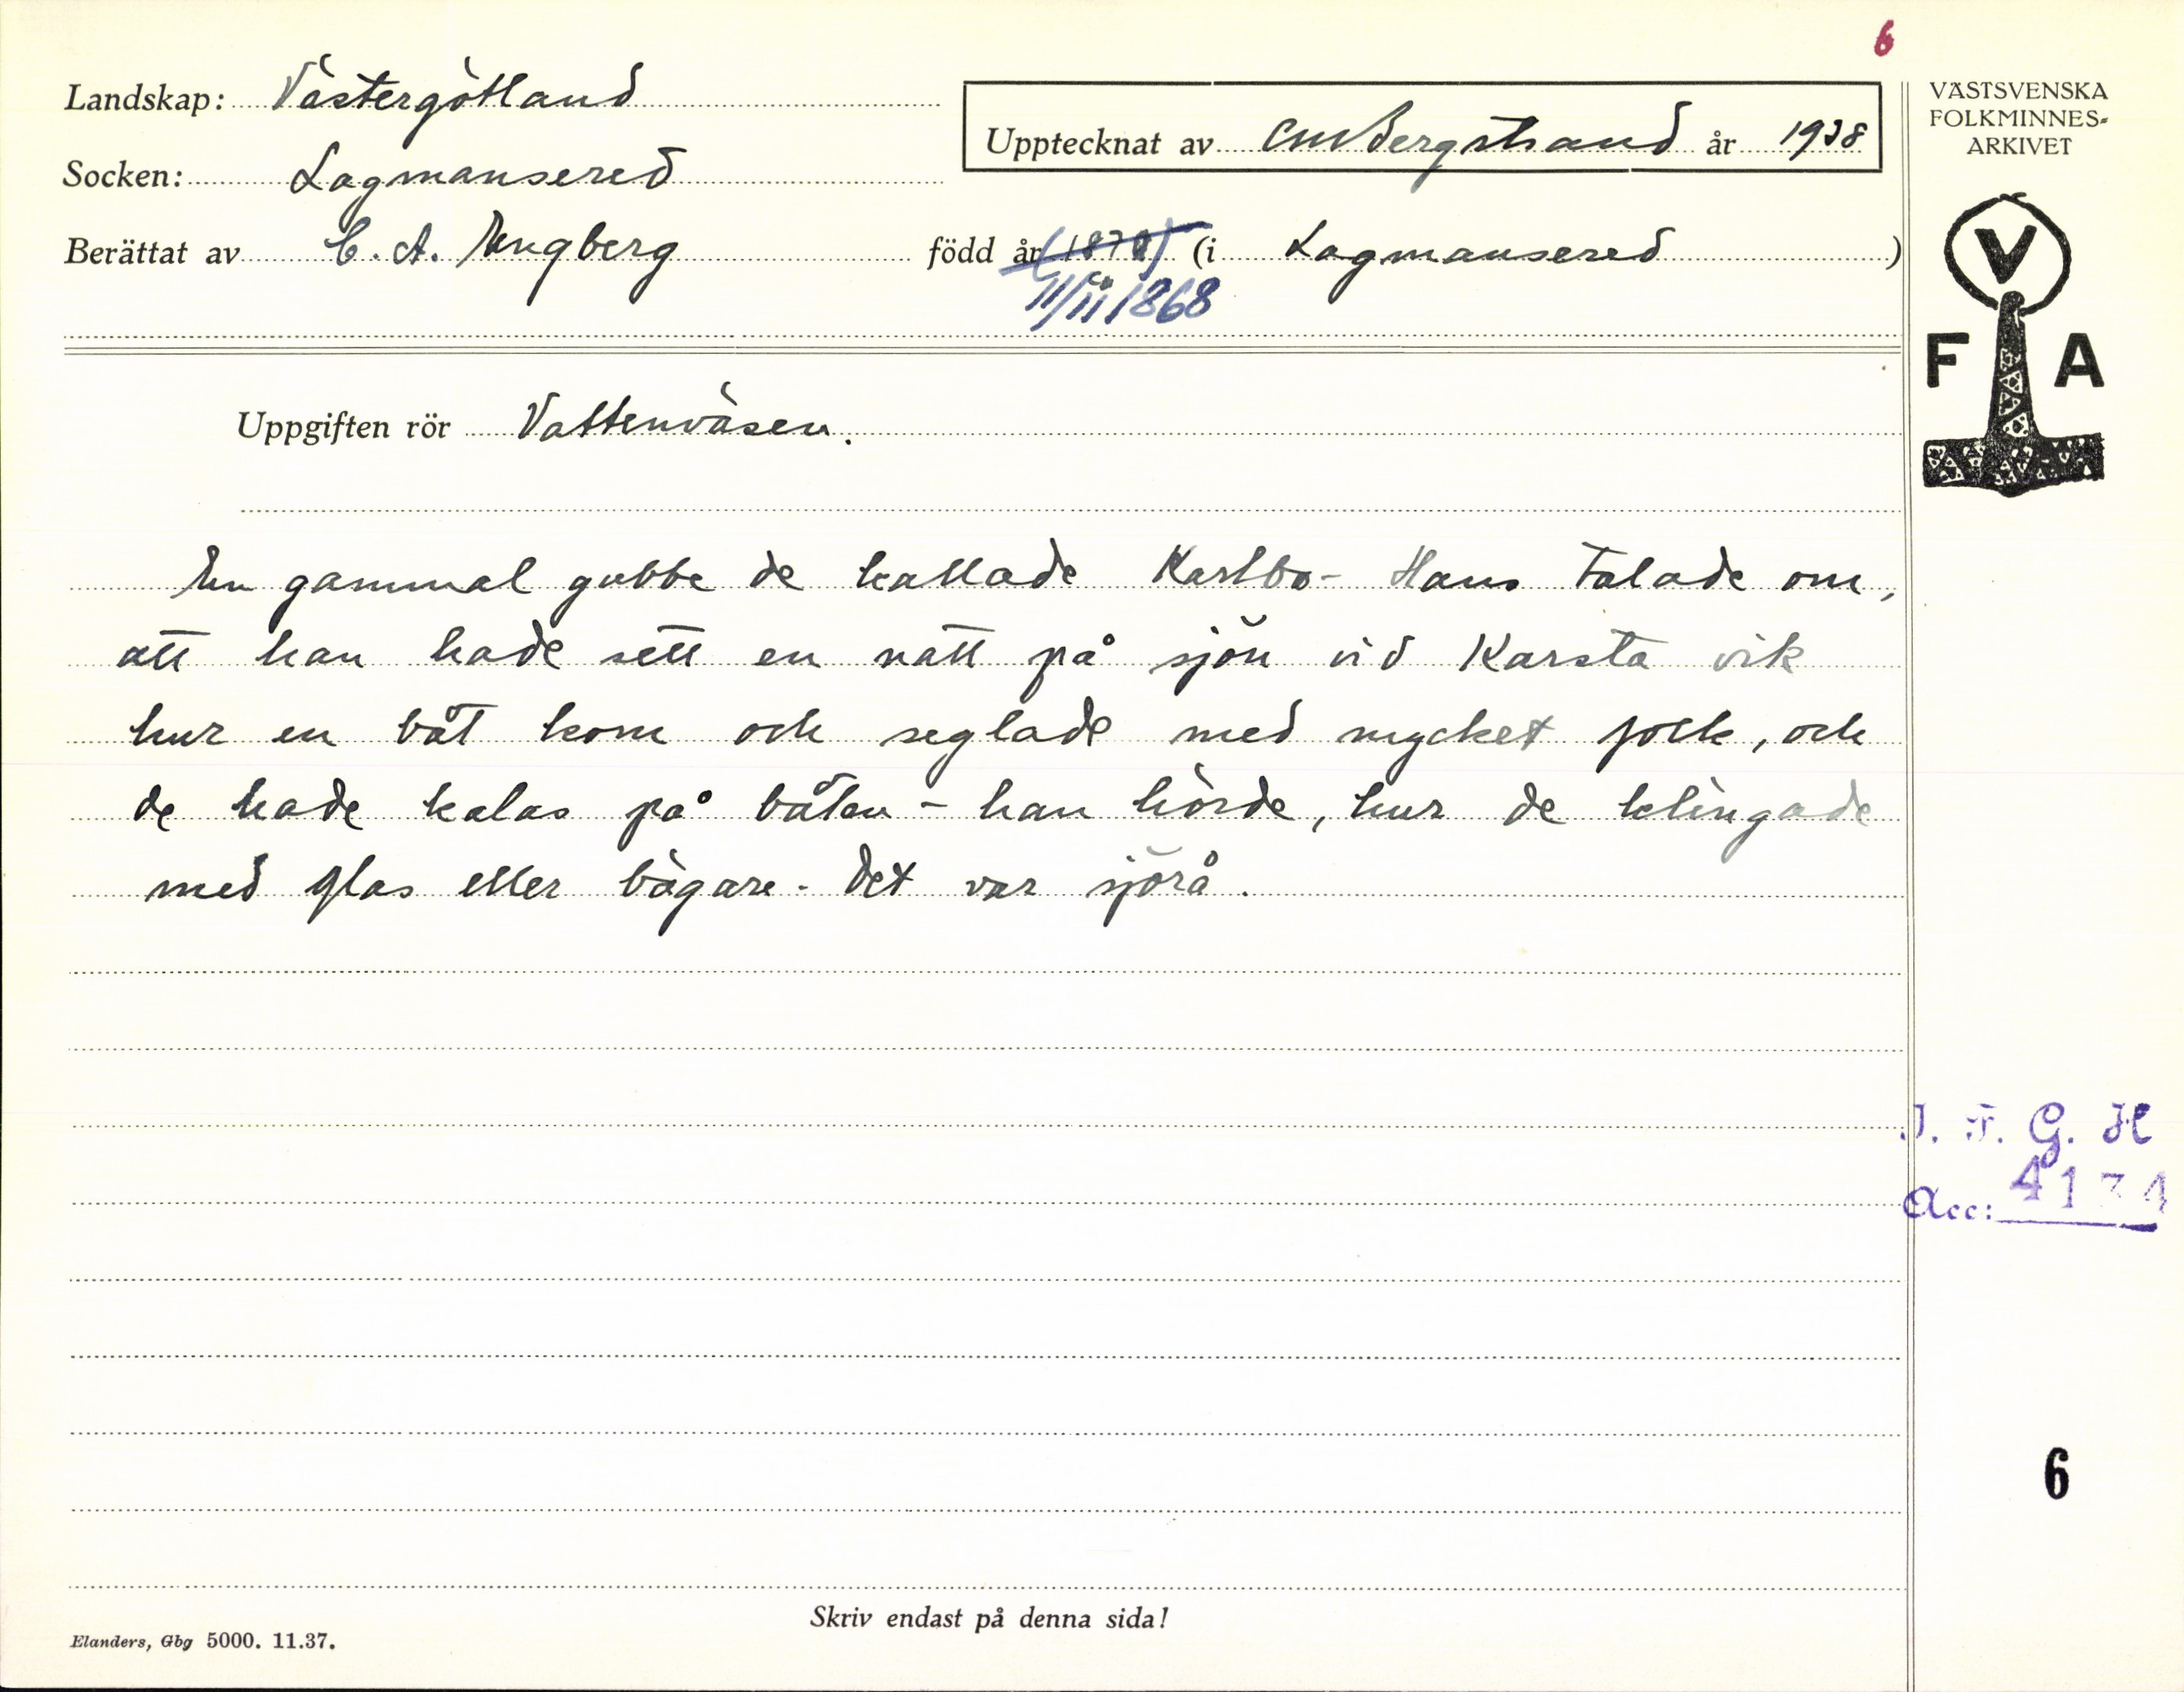 6
Landskap: Västergötland
Upptecknat av CM Bergstrand år 1938
VÄSTSVENSKA
FOLKMINNES-
ARKIVET
Socken: Lagmansered
Berättat av C. A. Engberg född år (i Lagmansered)
11/11 1868
V
F A
Uppgiften rör Vattenväsen.
En gammal gubbe de kallade Karlbo-Hans talade om,
att han hade sett en natt på sjön vid Karsta vik
hur en båt kom och seglade med mycket folk, och
de hade kalas på båten - han hörde, hur de klingade
med glas eller bägare. Det var sjörå.
I. F. G. H
Acc:
6
Skriv endast på denna sida!
Elanders, Gbg 5000. 11.37.